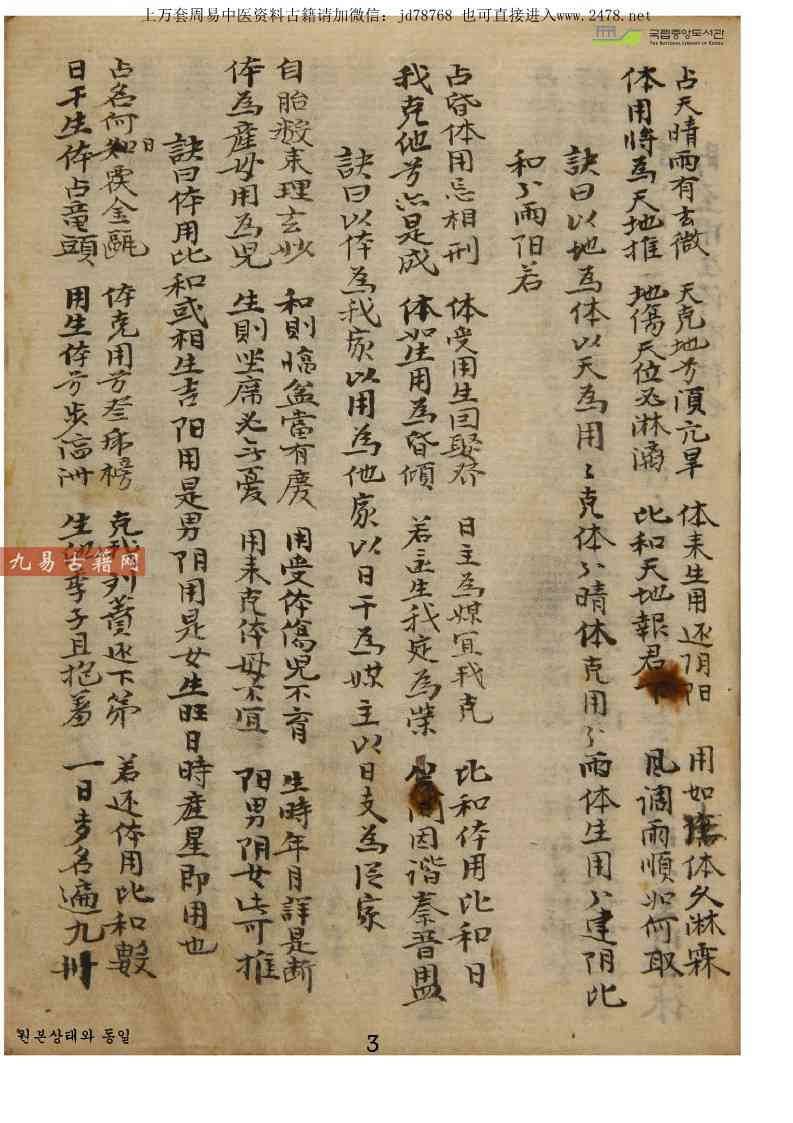 上万套周易中医资料古籍请加微信：jd78768 也可直接进入www.2478.net
국립중앙도서관
THE NATIONAL LIBRARY OF KOREA
占天晴雨有玄微 天克地兮湏亢旱 体来生用还阴阳 用如 体久淋霖
体用将為天地推 地傷天位必淋漓 比和天地報君 風调雨順如何取
訣曰以地為体以天為用〻克体〻晴体克用〻雨体生用〻建阴比
和〻雨阳若
占昏体用忌相刑 体受用生因娶 日主為媒宜我克 比和体用比和日
我克他兮 是成 体如生用為昏傾 若 生我定為荣 間因谐秦晋盟
訣曰以体為我家以用為他家以日干為媒主以日支為 家
自胎 来理玄妙 和則臨盆當有慶 用受体傷兒不育 生時年月詳是断
体為産母用為兒 生則坐席必無憂 用来克体母不宜 阳男阴女皆可推
訣曰体用比和或相生吉阳用是男阴用是女生旺日時産星即用也
占名何日 金甌 体克用兮 榜 克我 还下第 若还体用比和數
日干生体占竜頭 用生体兮步瀛洲 生 季子且抱羞 一日多名遍九卌
九易古籍网
원본상태와 동일
3